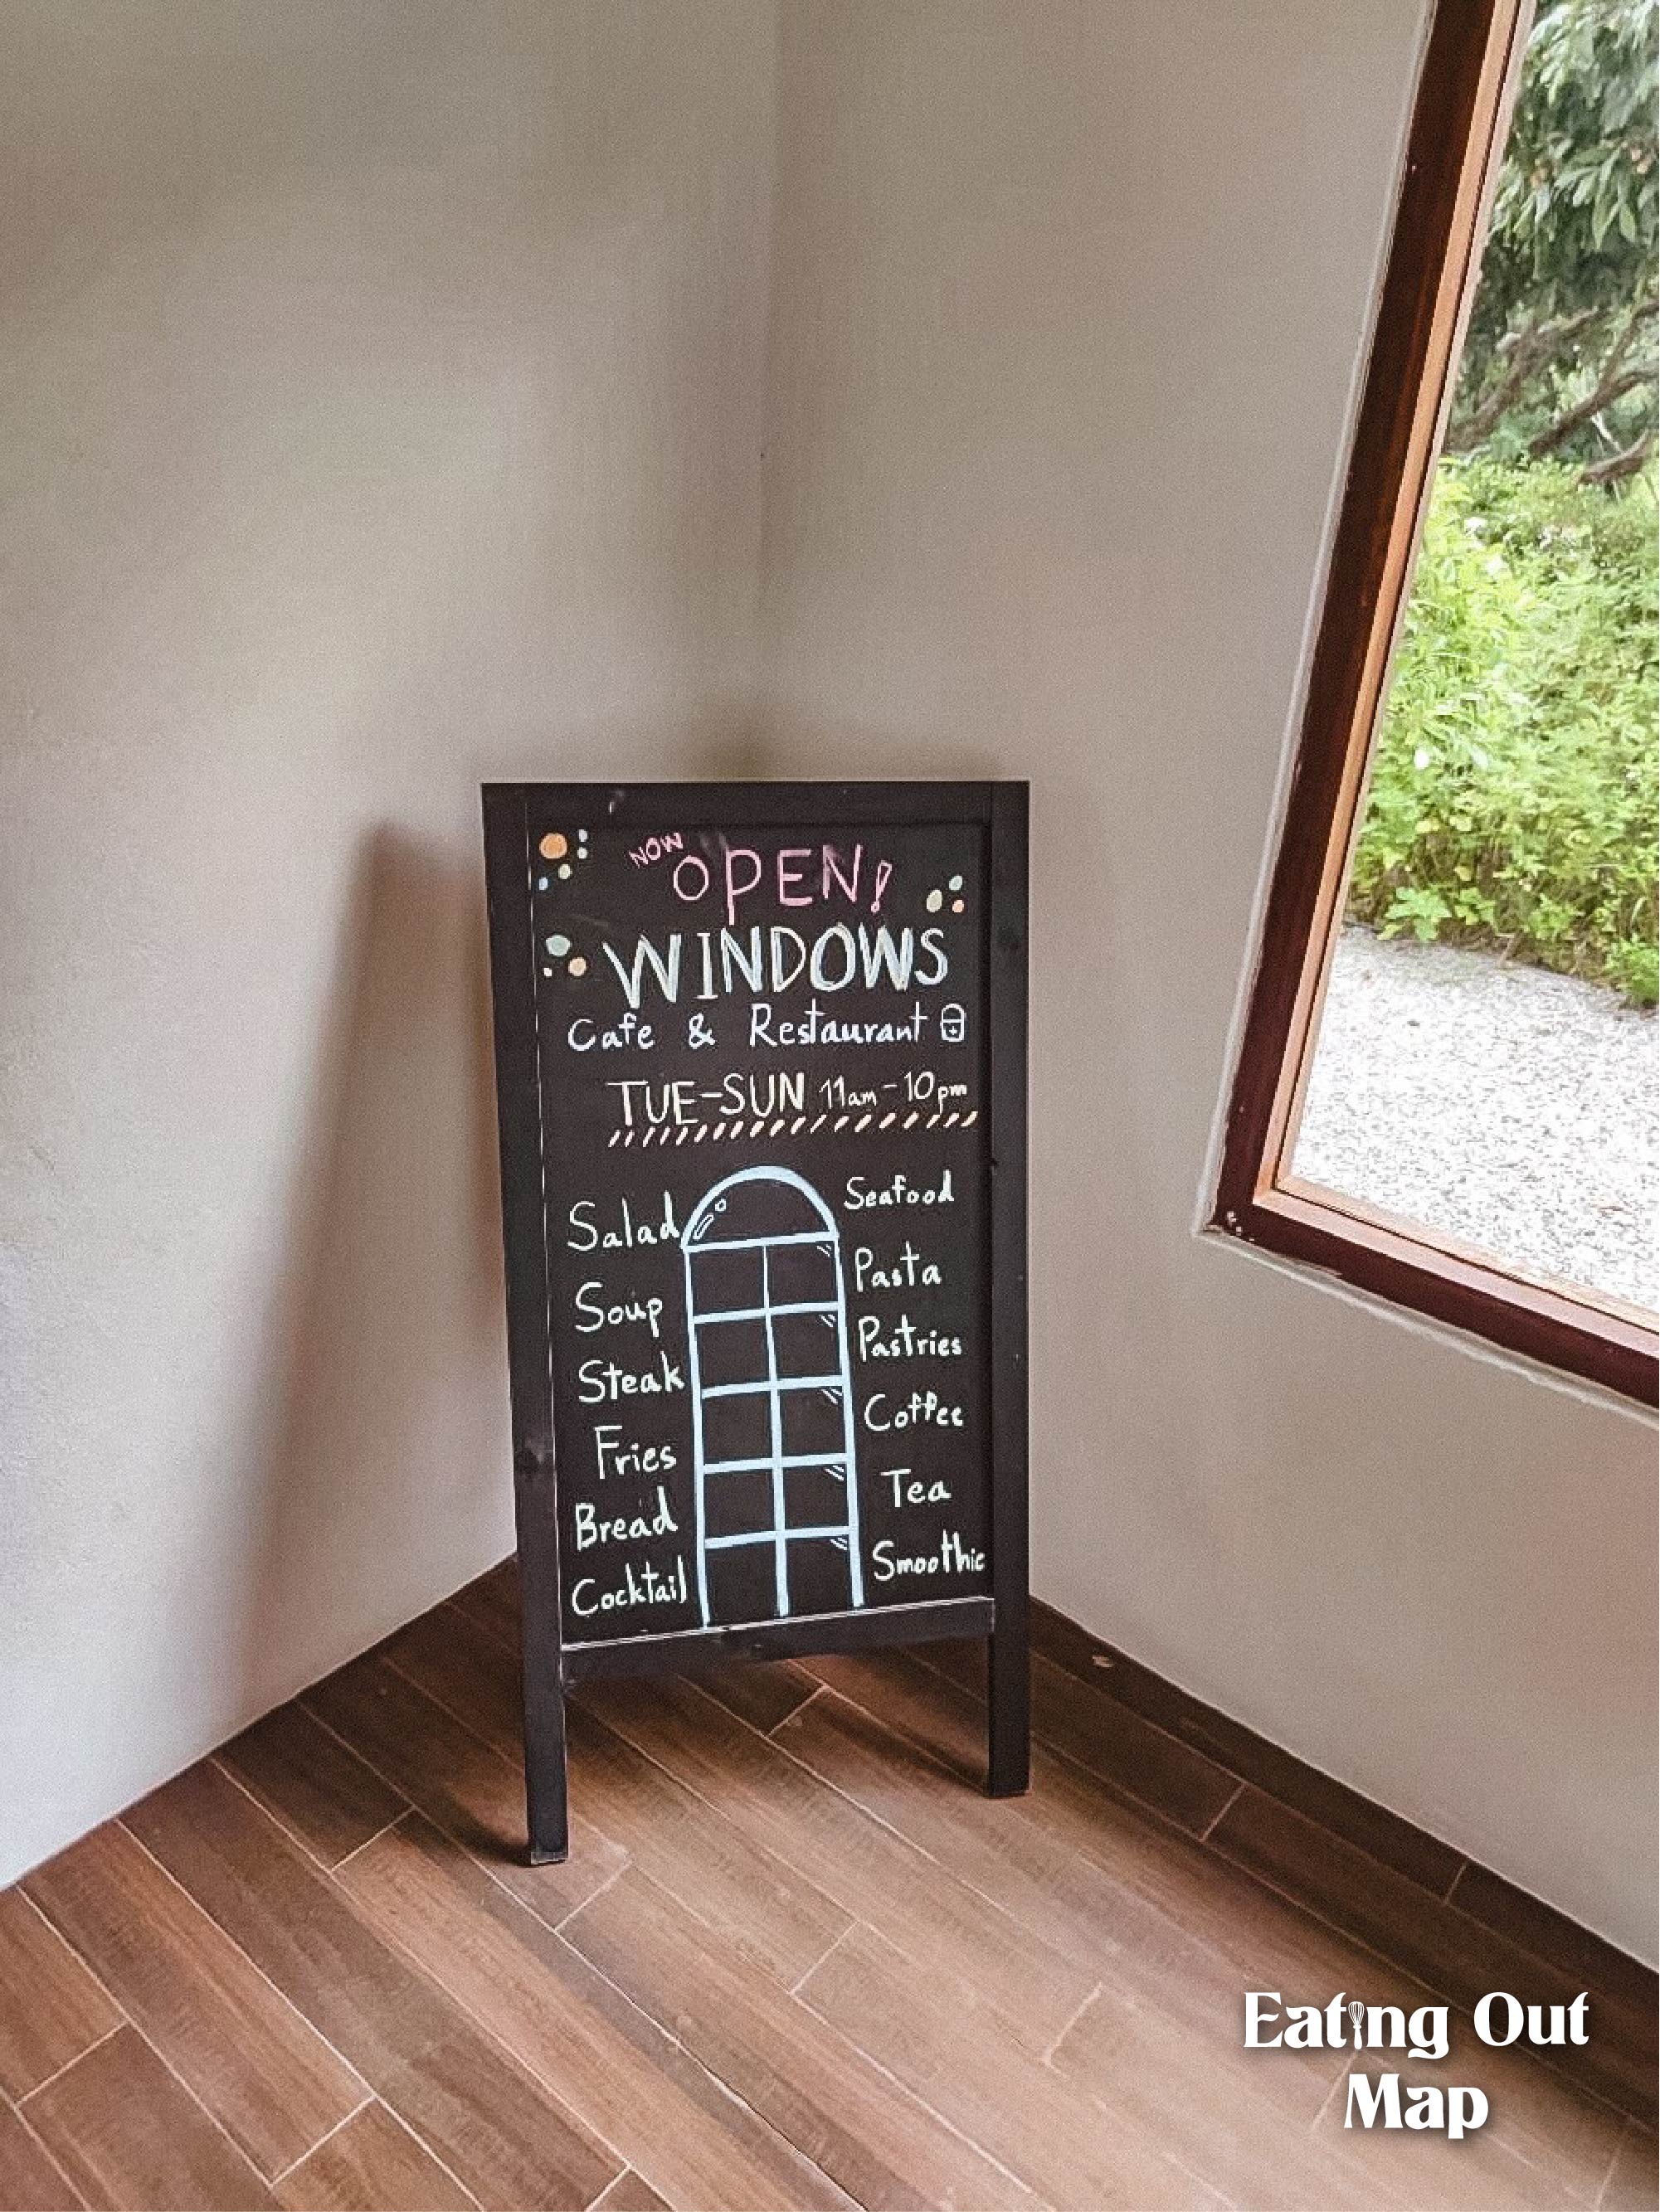 NOW
OPEN!
WINDOWS
Cafe & Restaurant
TUE-SUN 11am-10pm
Salad
Soup
Steak
Fries
Bread
Cocktail
Seafood
Pasta
Pastries
Coffee
Tea
Smoothie
Eating Out
Map